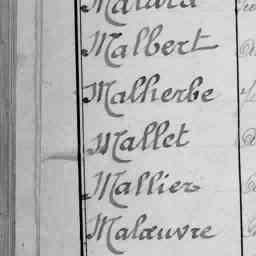 Malard
Malbert
Malherbe
Mallet
Mallier
Malœuvre